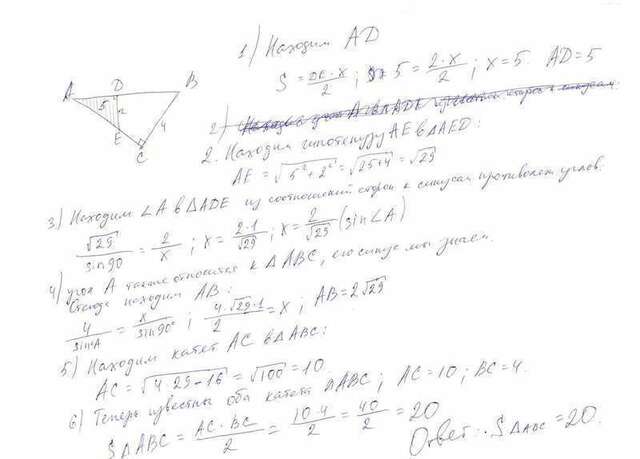 1) Находим AD
S = DE·x/2 ; 5 = 2·x/2 ; x = 5. AD = 5
A D B
5 2 4
E
C
2)
2. Находим гипотенузу AE в ΔAED:
AE = √(5² + 2²) = √(25+4) = √29
3) Находим ∠A в ΔADE из соотношений сторон к синусам противолеж. углов.
√29/sin90 = 2/x ; x = 2·1/√29 ; x = 2/√29 (sin∠A)
4) угол A также относится к ΔABC, его синус мы знаем.
Отсюда находим AB:
4/sin∠A = x/sin90° ; 4·√29·1/2 = x ; AB = 2√29
5) Находим катет AC в ΔABC:
AC = √(4·29 - 16) = √100 = 10.
6) Теперь известны оба катета ΔABC ; AC = 10 ; BC = 4.
SΔABC = AC·BC/2 = 10·4/2 = 40/2 = 20
Ответ: SΔABC = 20.